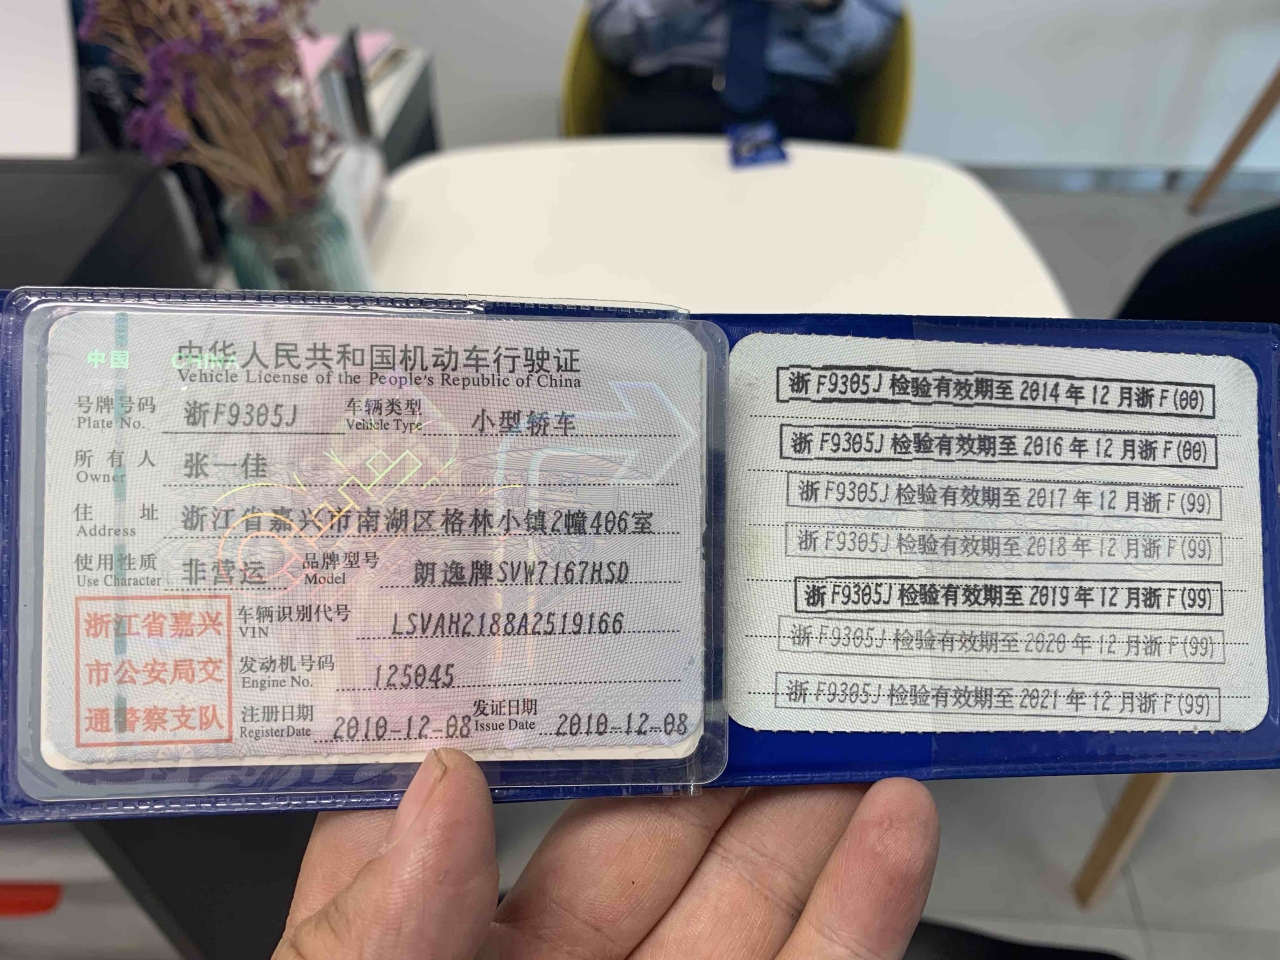 中国 CHINA
中华人民共和国机动车行驶证
Vehicle License of the People's Republic of China
号牌号码 浙F9305J 车辆类型 小型轿车
Plate No. Vehicle Type
所有人 张一佳
Owner
住址 浙江省嘉兴市南湖区格林小镇2幢406室
Address
使用性质 非营运 品牌型号 朗逸牌SVW7167HSD
Use Character Model
浙江省嘉兴
市公安局交
通警察支队
车辆识别代号 LSVAH2188A2519166
VIN
发动机号码 125045
Engine No.
注册日期 2010-12-08 发证日期 2010-12-08
Register Date Issue Date
浙F9305J检验有效期至2014年12月浙F(00)
浙F9305J检验有效期至2016年12月浙F(00)
浙F9305J检验有效期至2017年12月浙F(99)
浙F9305J检验有效期至2018年12月浙F(99)
浙F9305J检验有效期至2019年12月浙F(99)
浙F9305J检验有效期至2020年12月浙F(99)
浙F9305J检验有效期至2021年12月浙F(99)